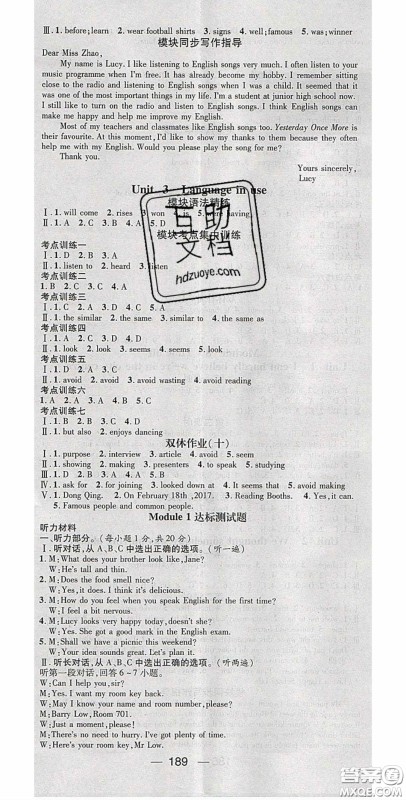 Ⅲ. 1. before; learn 2. wear football shirts 3. signs 4. well; famous 5. was; winner
模块同步写作指导
Dear Miss Zhao,
My name is Lucy. I like listening to English songs very much. I often listen to your
music programme when I'm free. It has already become my hobby. I remember sitting
close to the radio and listening to English songs when I was a child. It seemed that it
was one of the most important things in my life. I'm a student at junior high school now.
I still love to turn on the radio and listen to English songs. I think English songs can
make me happy and help me improve my English.
Most of my teachers and classmates like English songs too. Yesterday Once More is
their favourite. At this moment, I'd like to show my thanks to them because they often
help me with my English. Would you please play the song for me?
Thank you.
Yours sincerely,
Lucy
Unit 3 Language in use
模块语法精练
Ⅰ. 1. will come 2. rises 3. won 5. were having
模块考点集中训练
考点训练一
Ⅰ. 1. A 2. D 3. D
Ⅱ. 1. listen to 2. heard 3. listen
考点训练二
1. B 2. C 3. C 4. A
考点训练三
Ⅰ. 1. D 2. C 3. D
Ⅱ. 1. similar 2. same 3. the similar 4. the same
考点训练四
Ⅰ. 1. A 2. D 3. D 4. D
Ⅱ. 1. look 2. look 3. seems 4. seems 5. look
考点训练五
Ⅰ. 1. D 2. A
Ⅱ. 1. avoid 2. avoid waiting 3. avoid 4. avoid reading
考点训练六
1. A 2. A 3. D 4. A 5. B
考点训练七
Ⅰ. 1. B 2. D 3. A
Ⅱ. 1. but also 2. enjoys dancing
双休作业(十)
Ⅰ. 1. purpose 2. interview 3. article 4. avoid 5. seems
Ⅱ. 1. showing 2. making 3. presenters 4. to study 5. to speak
Ⅲ. 1. D 2. A 3. B 4. D 5. C
Ⅳ. 1. ask for 2. for joining 3. looked at 4. looked out of 5. in person
Ⅴ. 1. Dong Qing. 2. On February 18th, 2017. 3. Reading Booths. 4. Yes.
5. Famous people and common people.
Module 1 达标测试题
听力材料
一、听力部分。(每小题1分,共20分)
Ⅰ. 听对话,从A、B、C中选出正确的选项。(听一遍)
1. M: What does your brother look like, Jane?
W: He's tall and thin.
2. M: Does the food smell nice?
W: Yes, it does. I think it's delicious.
3. M: How do you feel when you speak English for the first time?
W: I feel a bit nervous.
4. M: Lucy looks very happy today, doesn't she?
W: Yes. She got a good mark in the English exam.
5. M: Shall we have a picnic this weekend?
W: Your idea sounds great. Let's plan it.
Ⅱ. 听长对话,从A、B、C中选出正确的选项。(听两遍)
听第一段对话,回答6-7小题。
W: Can I help you, sir?
M: Yes. I want my room key back.
W: May I know your name and room number, please?
M: Barry Low, Room 701.
W: Just a moment, please!
M: There's no need to hurry. I've got plenty of time.
W: Here's your room key, Mr Low.
— 189 —
互助
文档
hdzuoye.com
答案圈
MXQE.COM